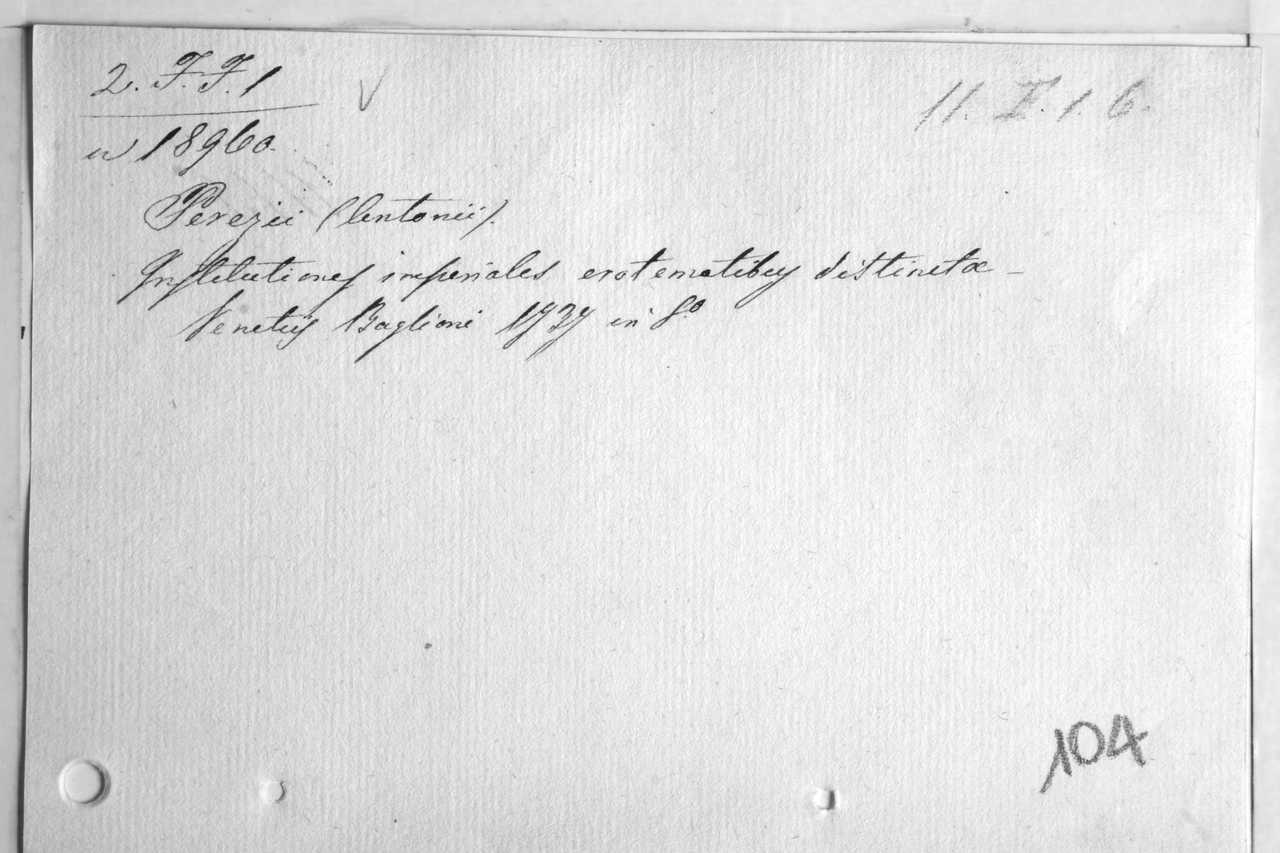 2. F.F. 1
11. I. 1. 6.
n 18960.
Perezii (Antonii).
Institutiones imperiales erotematibus distinctæ -
Venetiis Baglioni 1737 in 8º
104